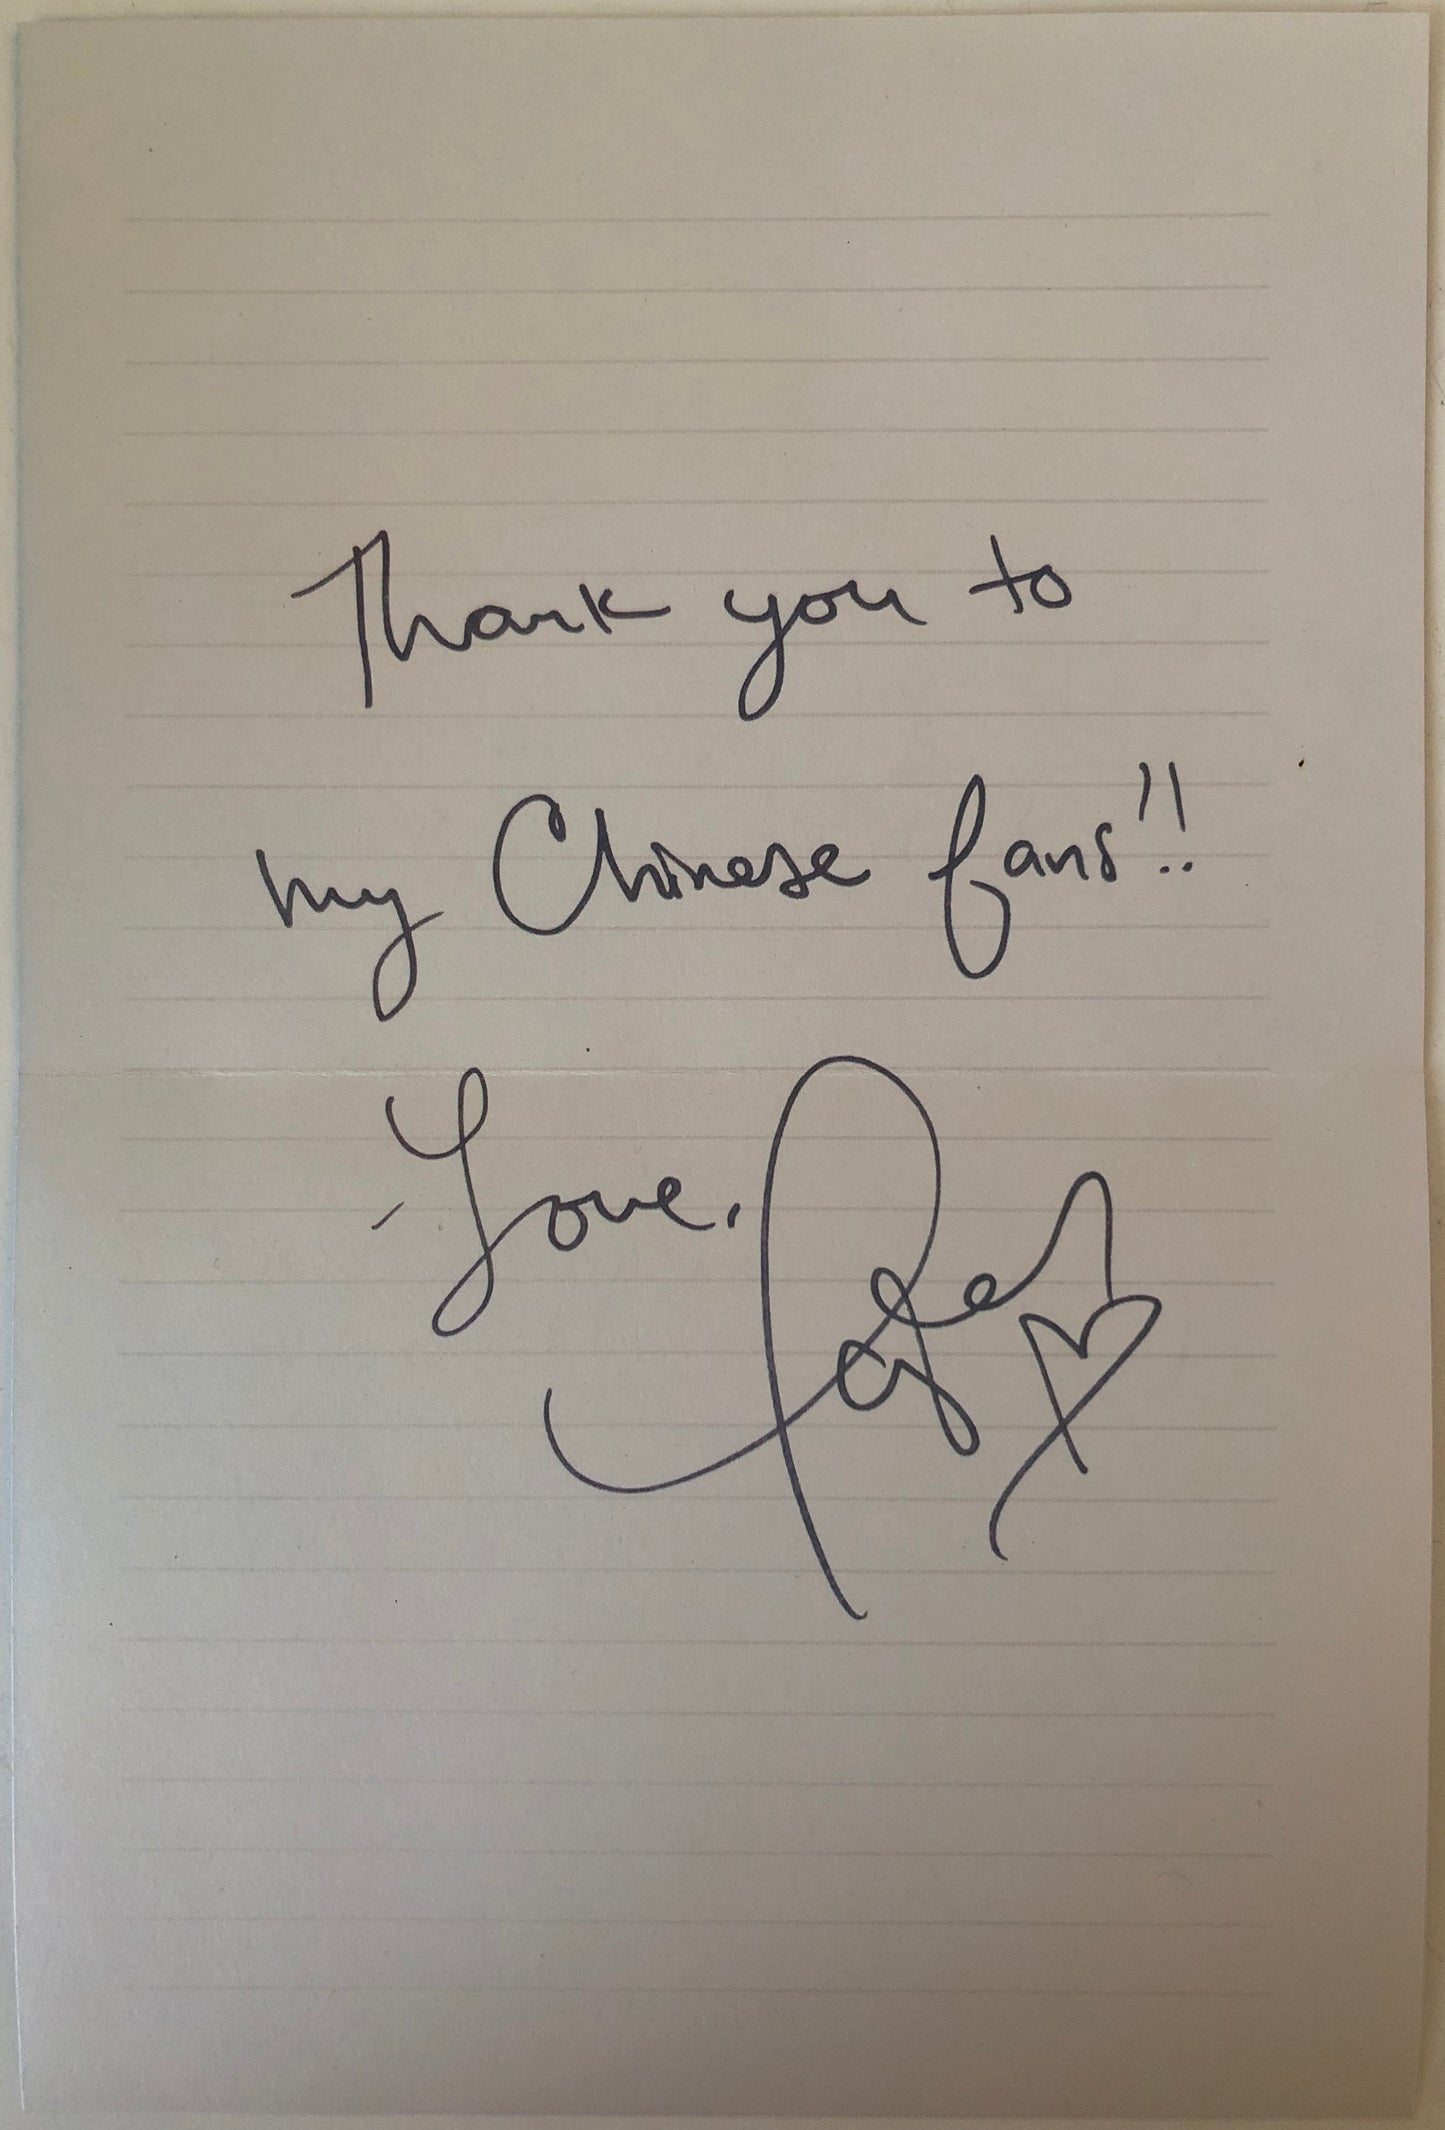 Thank you to
my Chinese fans!!
- Love,